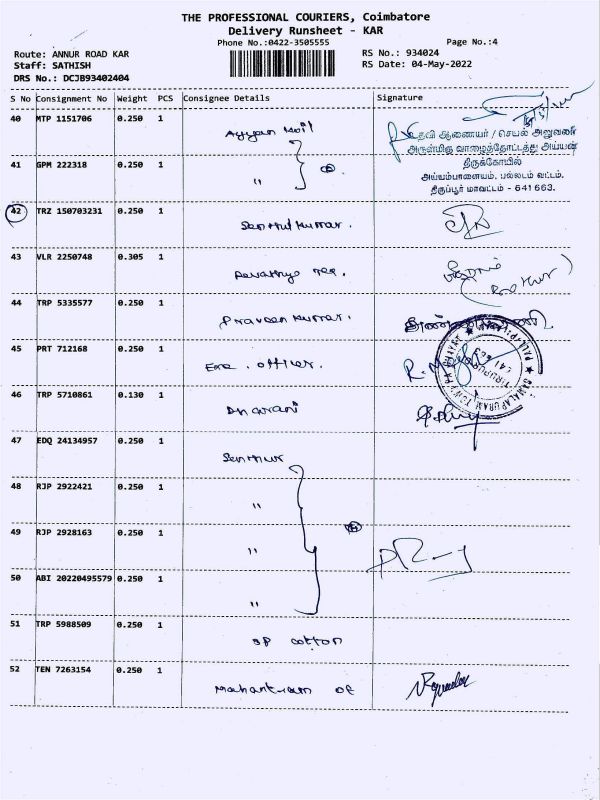 THE PROFESSIONAL COURIERS, Coimbatore
Delivery Runsheet - KAR
Phone No.:0422-3505555 Page No.:4
Route: ANNUR ROAD KAR RS No.: 934024
Staff: SATHISH RS Date: 04-May-2022
DRS No.: DCJB93402404
S No Consignment No Weight PCS Consignee Details Signature
40 MTP 1151706 0.250 1 Ayyan Koil
உதவி ஆணையர் / செயல் அலுவலர்
அருள்மிகு வாழைத்தோட்டத்து அய்யன்
திருக்கோயில்
அய்யம்பாளையம், பல்லடம் வட்டம்.
திருப்பூர் மாவட்டம் - 641 663.
41 GPM 222318 0.250 1 "
42 TRZ 150703231 0.250 1 Senthil Kumar.
43 VLR 2250748 0.305 1
44 TRP 5335577 0.250 1 Praveen Kumar.
45 PRT 712168 0.250 1 Exe. officer.
46 TRP 5710861 0.130 1 Dharani
47 EDQ 24134957 0.250 1 Senthur
48 RJP 2922421 0.250 1 "
49 RJP 2928163 0.250 1 "
50 ABI 20220495579 0.250 1 "
51 TRP 5988509 0.250 1 SP cotton
52 TEN 7263154 0.250 1